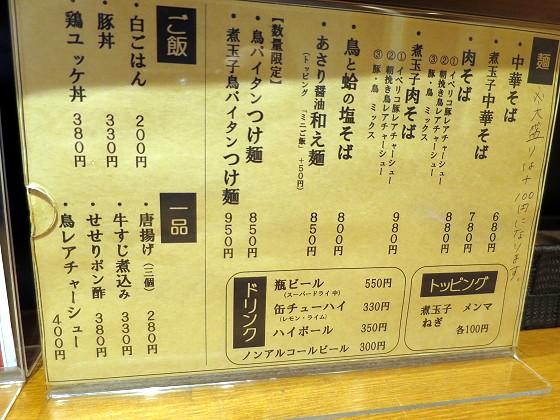 麺
・中華そば 680円
・煮玉子中華そば 780円
・肉そば 880円
①イベリコ豚レアチャーシュー
②朝挽き鳥レアチャーシュー
③豚・鳥 ミックス
・煮玉子肉そば 980円
①イベリコ豚レアチャーシュー
②朝挽き鳥レアチャーシュー
③豚・鳥 ミックス
・鳥と蛤の塩そば 800円
・あさり醤油和え麺 850円
(トッピング 「ミニご飯」 +50円)
【数量限定】
・鳥バイタンつけ麺 850円
・煮玉子鳥バイタンつけ麺 950円
※大盛りは+100円になります。
ご飯
・白ごはん 200円
・豚丼 330円
・鶏ユッケ丼 380円
一品
・唐揚げ(三個) 280円
・牛すじ煮込み 330円
・せせりポン酢 380円
・鳥レアチャーシュー 400円
ドリンク
瓶ビール 550円
(スーパードライ 中)
缶チューハイ 330円
(レモン・ライム)
ハイボール 350円
ノンアルコールビール 300円
トッピング
煮玉子 メンマ
ねぎ 各100円